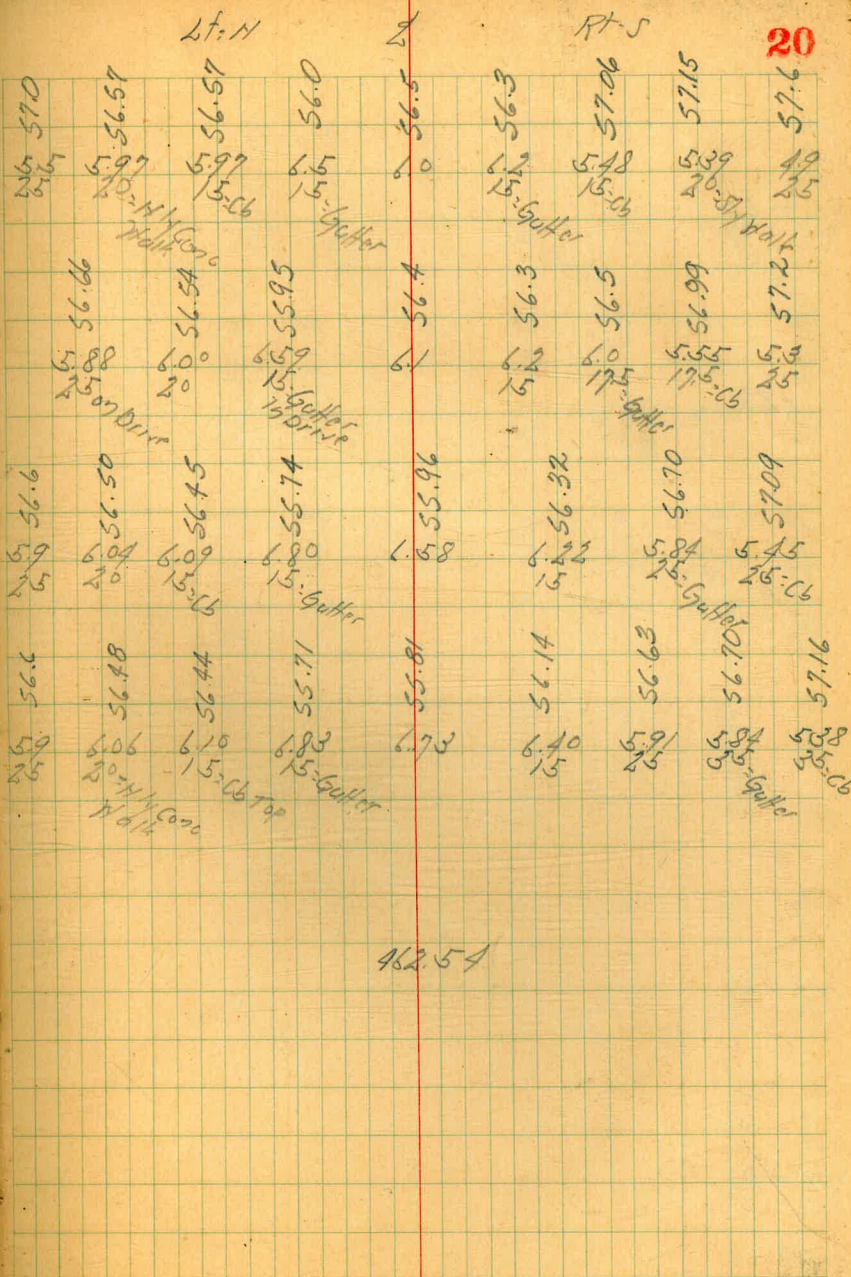 Lt. N ℄ Rt-S 20
57.0 56.57 56.57 56.0 56.5 56.3 57.06 57.15 57.6
5.5 5.97 5.97 6.5 6.0 6.2 5.48 5.39 4.9
25 20=N'ly Conc Walk 15=Cb 15=Gutter 15=Gutter 15=Cb 20=S'ly Walk 25
56.66 56.54 55.95 56.4 56.3 56.5 56.99 57.2
5.88 6.00 6.59 6.1 6.2 6.0 5.55 5.3
25 on Drive 20 15=Gutter in Drive 15 17.5=Gutter 17.5=Cb 25
56.6 56.50 56.45 55.74 55.96 56.32 56.70 57.09
5.9 6.04 6.09 6.80 6.58 6.22 5.84 5.45
25 20 15=Cb 15=Gutter 15 25=Gutter 25=Cb
56.6 56.48 56.44 55.71 55.81 56.14 56.63 56.70 57.16
5.9 6.06 6.10 6.83 6.73 6.40 5.91 5.84 5.38
25 20=N'ly Conc Walk 15=Cb Top 15=Gutter 15 25 35=Gutter 35=Cb
462.54